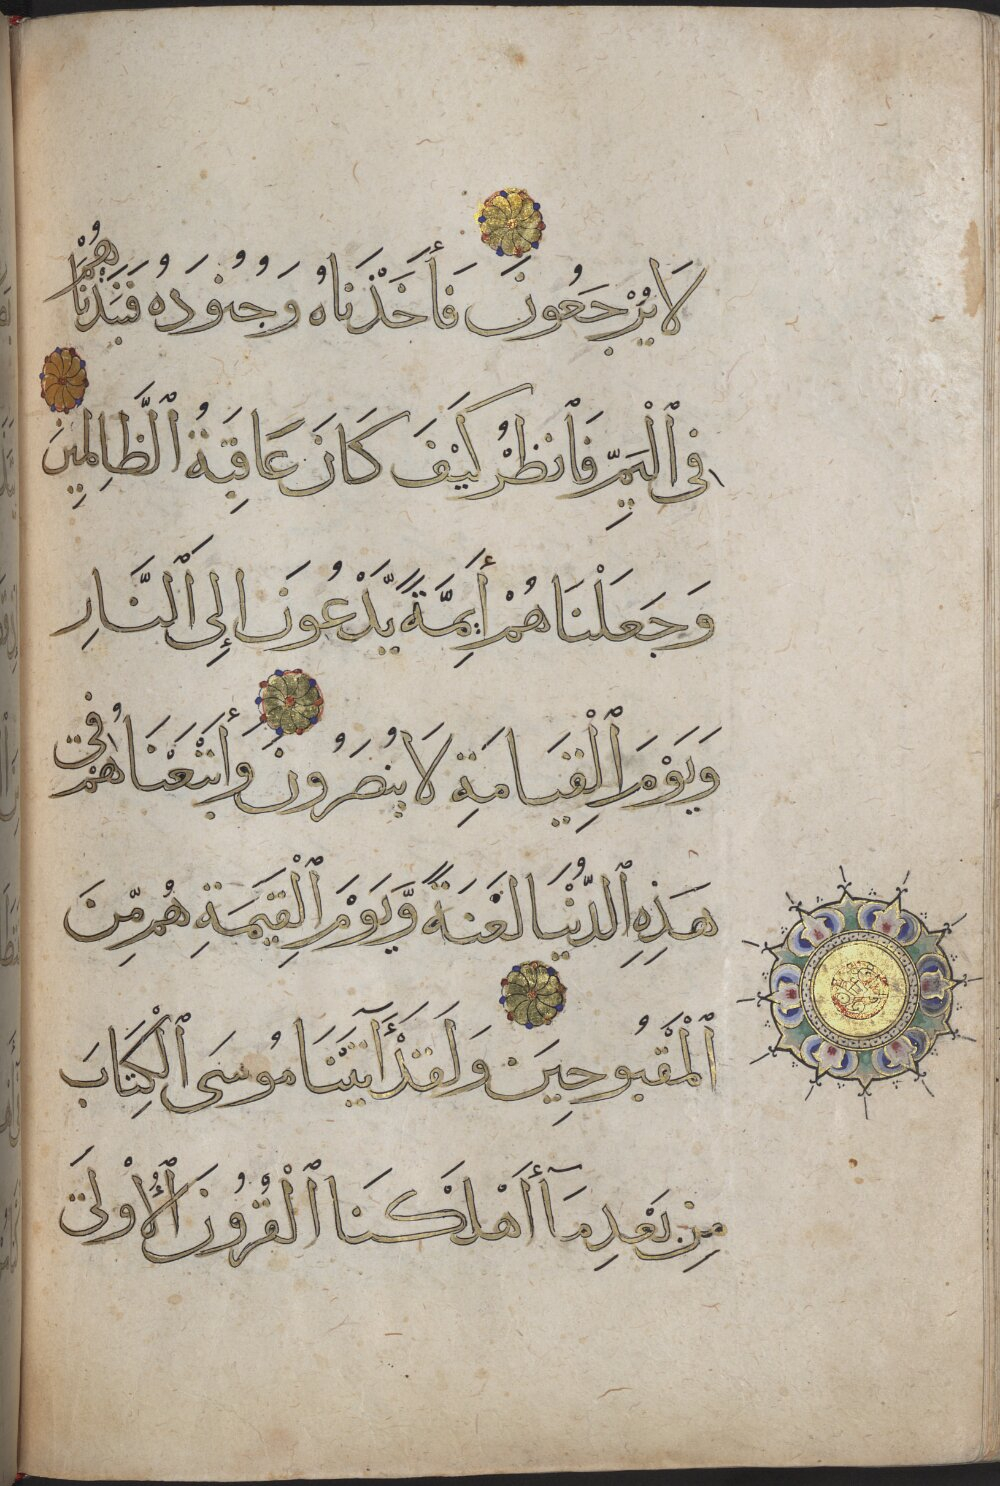 لَا يُرْجَعُونَ فَأَخَذْنَاهُ وَجُنُودَهُ فَنَبَذْنَاهُمْ
فِى ٱلْيَمِّ فَٱنظُرْ كَيْفَ كَانَ عَاقِبَةُ ٱلظَّالِمِينَ
وَجَعَلْنَاهُمْ أَئِمَّةً يَّدْعُونَ إِلَى ٱلنَّارِ
وَيَوْمَ ٱلْقِيَامَةِ لَا يُنصَرُونَ وَأَتْبَعْنَاهُمْ فِى
هَذِهِ ٱلدُّنْيَا لَعْنَةً وَّيَوْمَ ٱلْقِيَمَةِ هُم مِّنَ
ٱلْمَقْبُوحِينَ وَلَقَدْ أَٓتَيْنَا مُوسَى ٱلْكِتَابَ
مِن بَعْدِ مَآ أَهْلَكْنَا ٱلْقُرُونَ ٱلْأُوْلَىٰ